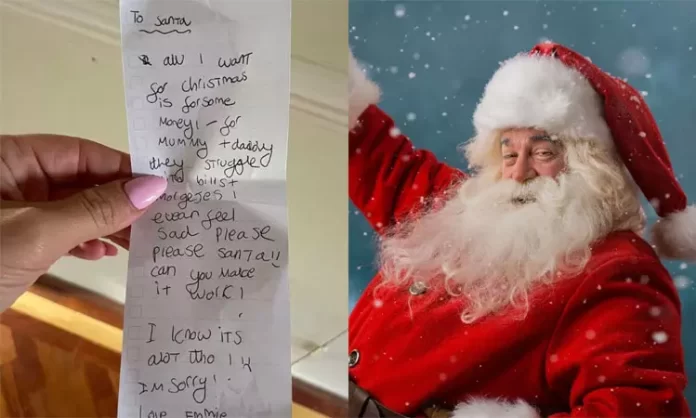 To Santa
all I want
for christmas
is forsome
Money! - for
Mummy + daddy
they struggle
bills +
morgeses I
ewan feel
Sad Please
please Santa!!
can you make
it work!
I know its
alot tho!
I'm Sorry!
Love Emmie